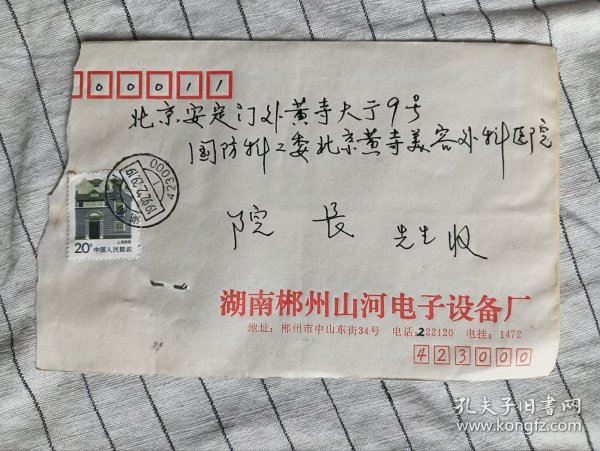 00011
北京安定门外黄寺大厅9号
国防科工委北京黄寺美容外科医院
423000
1992.2.29.19
上海民居
20分 中国人民邮政
院 长 先生收
湖南郴州山河电子设备厂
地址：郴州市中山东街34号 电话：222120 电挂：1472
423000
孔夫子旧书网
www.kongfz.com